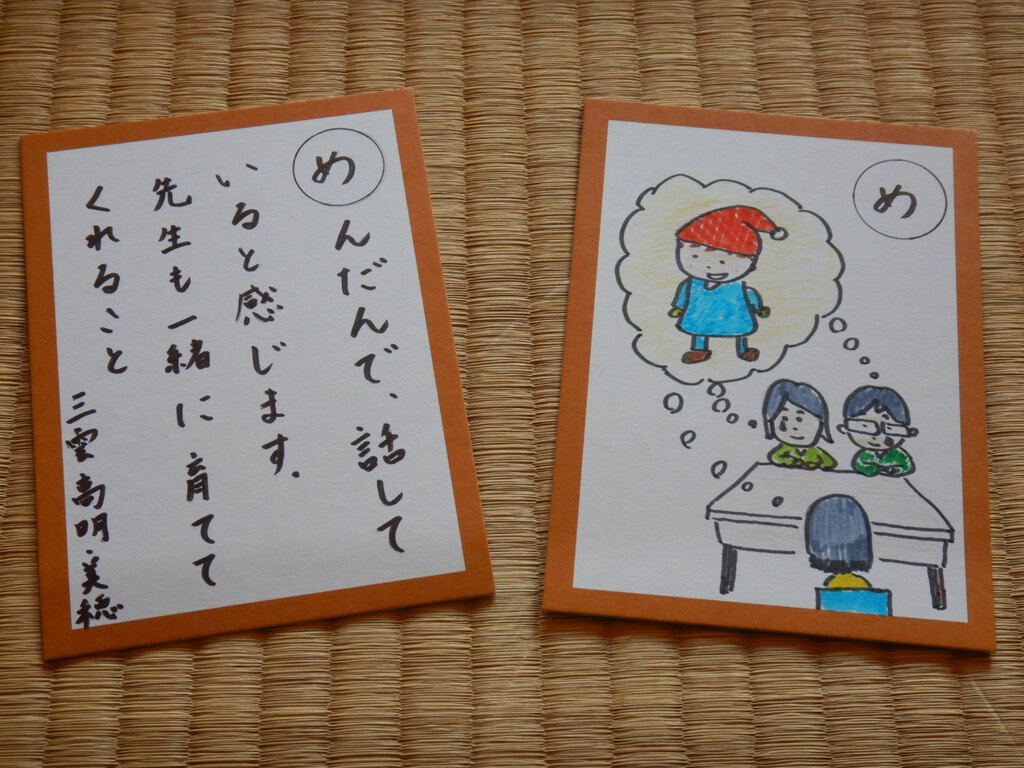 め
んだんで、話して
いると感じます.
先生も一緒に育てて
くれること
三雲高明・美穂
め